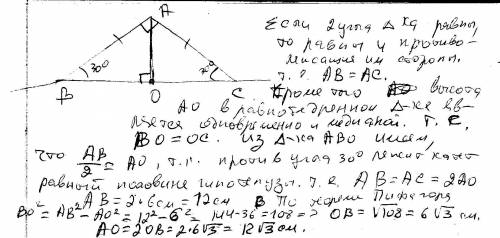 A
30°
30°
B
O
C
Если 2 угла Δ-ка равны,
то равны и противо-
лежащие им стороны.
т. е. AB = AC.
Кроме того высота
AO в равнобедренном Δ-ке яв-
ляется одновременно и медианой. т. е.
BO = OC. Из Δ-ка ABO имеем,
что AB/2 = AO, т.к. против угла 30° лежит катет
равный половине гипотенузы. т.е. AB = AC = 2AO
AB = 2·6см = 12см В По теореме Пифагора
BO² = AB² - AO² = 12² - 6² = 144-36 = 108 => OB = √108 = 6√3 см.
AO = 2OB = 2·6√3 = 12√3 см.